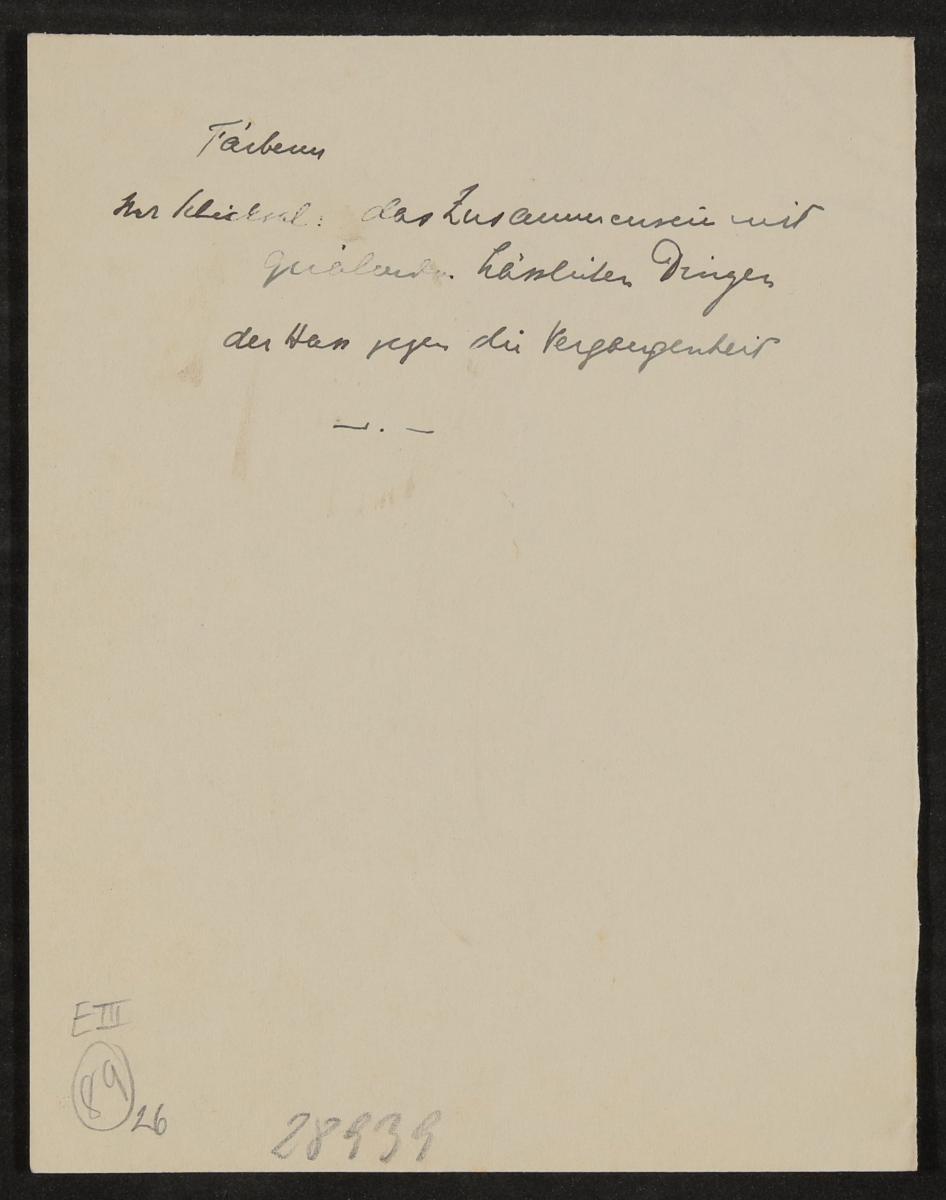 Färberin
Ihr Schicksal: das Zusammensein mit
quälenden hässlichen Dingen
der Hass gegen die Vergangenheit
— . —
E III
89
26
28939